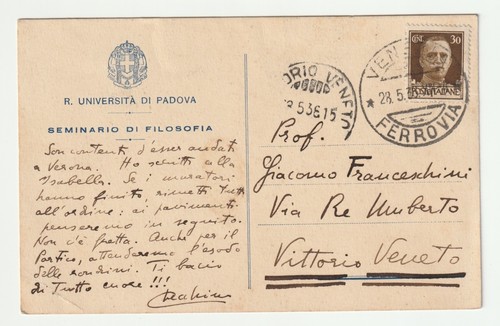 R. UNIVERSITÀ DI PADOVA
SEMINARIO DI FILOSOFIA
Son contento d'esser andato
a Verona. Ho scritto alla
Isabella. Se i muratori
hanno finito, rimetti tutto
all'ordine: ai pavimenti
penseremo in seguito.
Non c'è fretta. Anche per il
Portico, attenderemo l'esodo
delle rondini. Ti bacio
di tutto cuore!!!
ORIO VENETO
8.5 36.15
VEN
28.5.
FERROVIA
CENT. 30
POSTE ITALIANE
Prof.
Giacomo Franceschini
Via Re Umberto
Vittorio Veneto